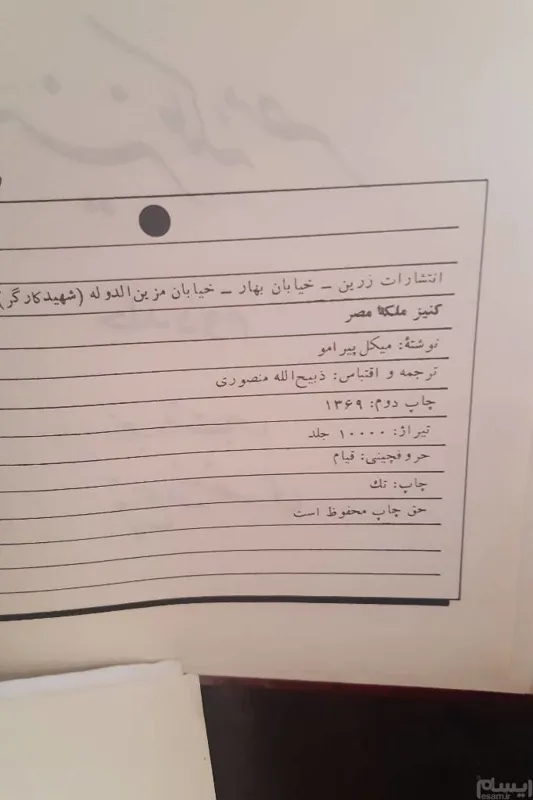 انتشارات زرین – خیابان بهار – خیابان مزین‌الدوله (شهید کارگر)
کنیز ملکهٔ مصر
نوشتهٔ: میکل پیرامو
ترجمه و اقتباس: ذبیح‌الله منصوری
چاپ دوم: ۱۳۶۹
تیراژ: ۱۰۰۰۰ جلد
حروفچینی: قیام
چاپ: تك
حق چاپ محفوظ است
ایسام
esam.ir